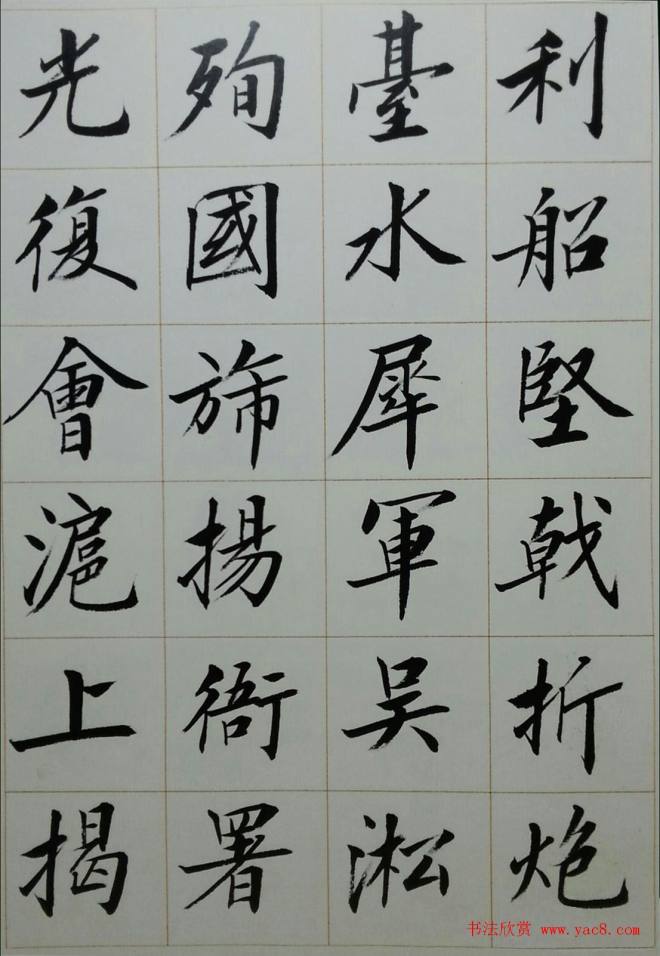 利船堅戟折炮
臺水犀軍吴淞
殉國旆揚衙署
光復會滬上揭
书法欣赏 www.yac8.com